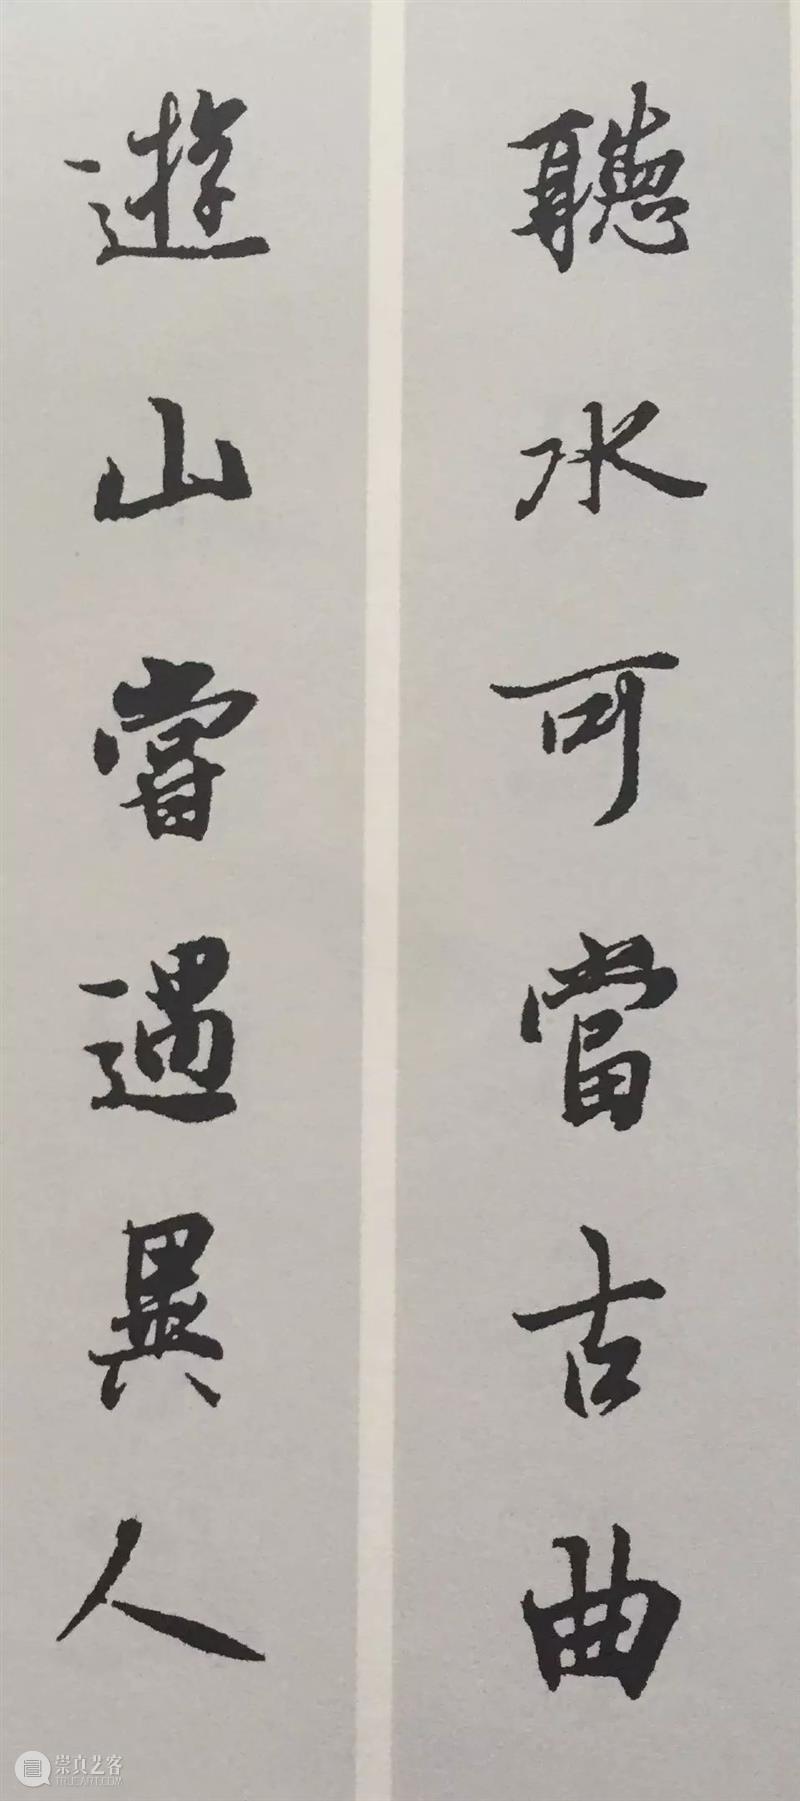 聽水可當古曲
遊山嘗遇異人
崇真艺客
TRUEART.COM